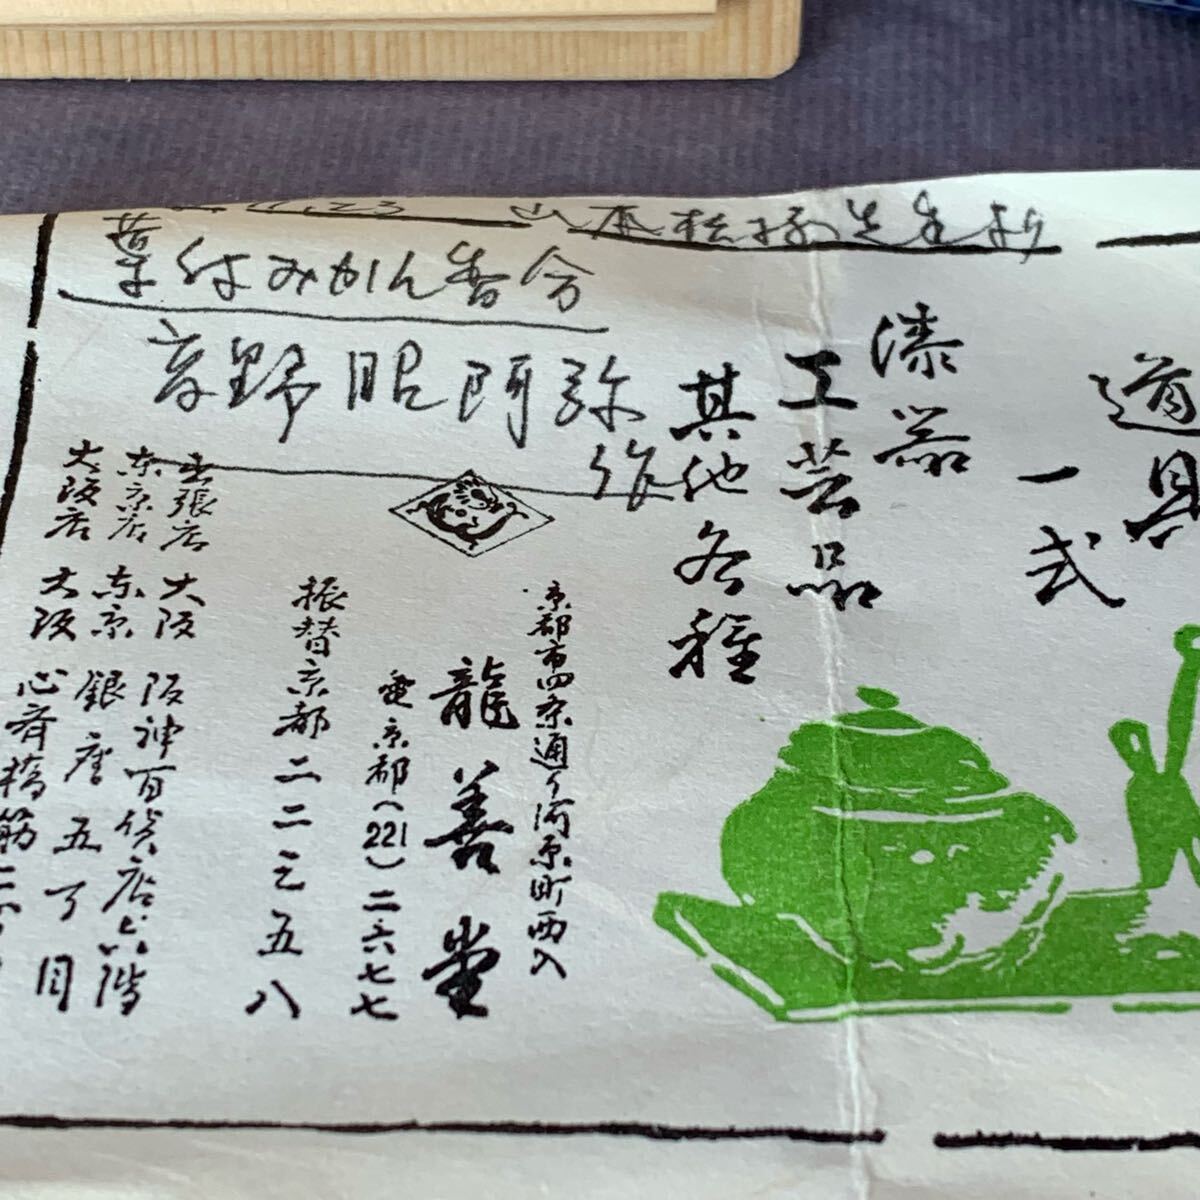 11.23 山本桂子先生より
葉付みかん香合
高野眼阿弥
作
道具
一式
漆器
工芸品
其他各種
京都市四条通ヶ河原町西入
龍善堂
電京都(221)二六七七
振替京都二二之五八
出張店 大阪 阪神百貨店六階
东京店 东京 銀座五丁目
大阪店 大阪 心斉橋筋二